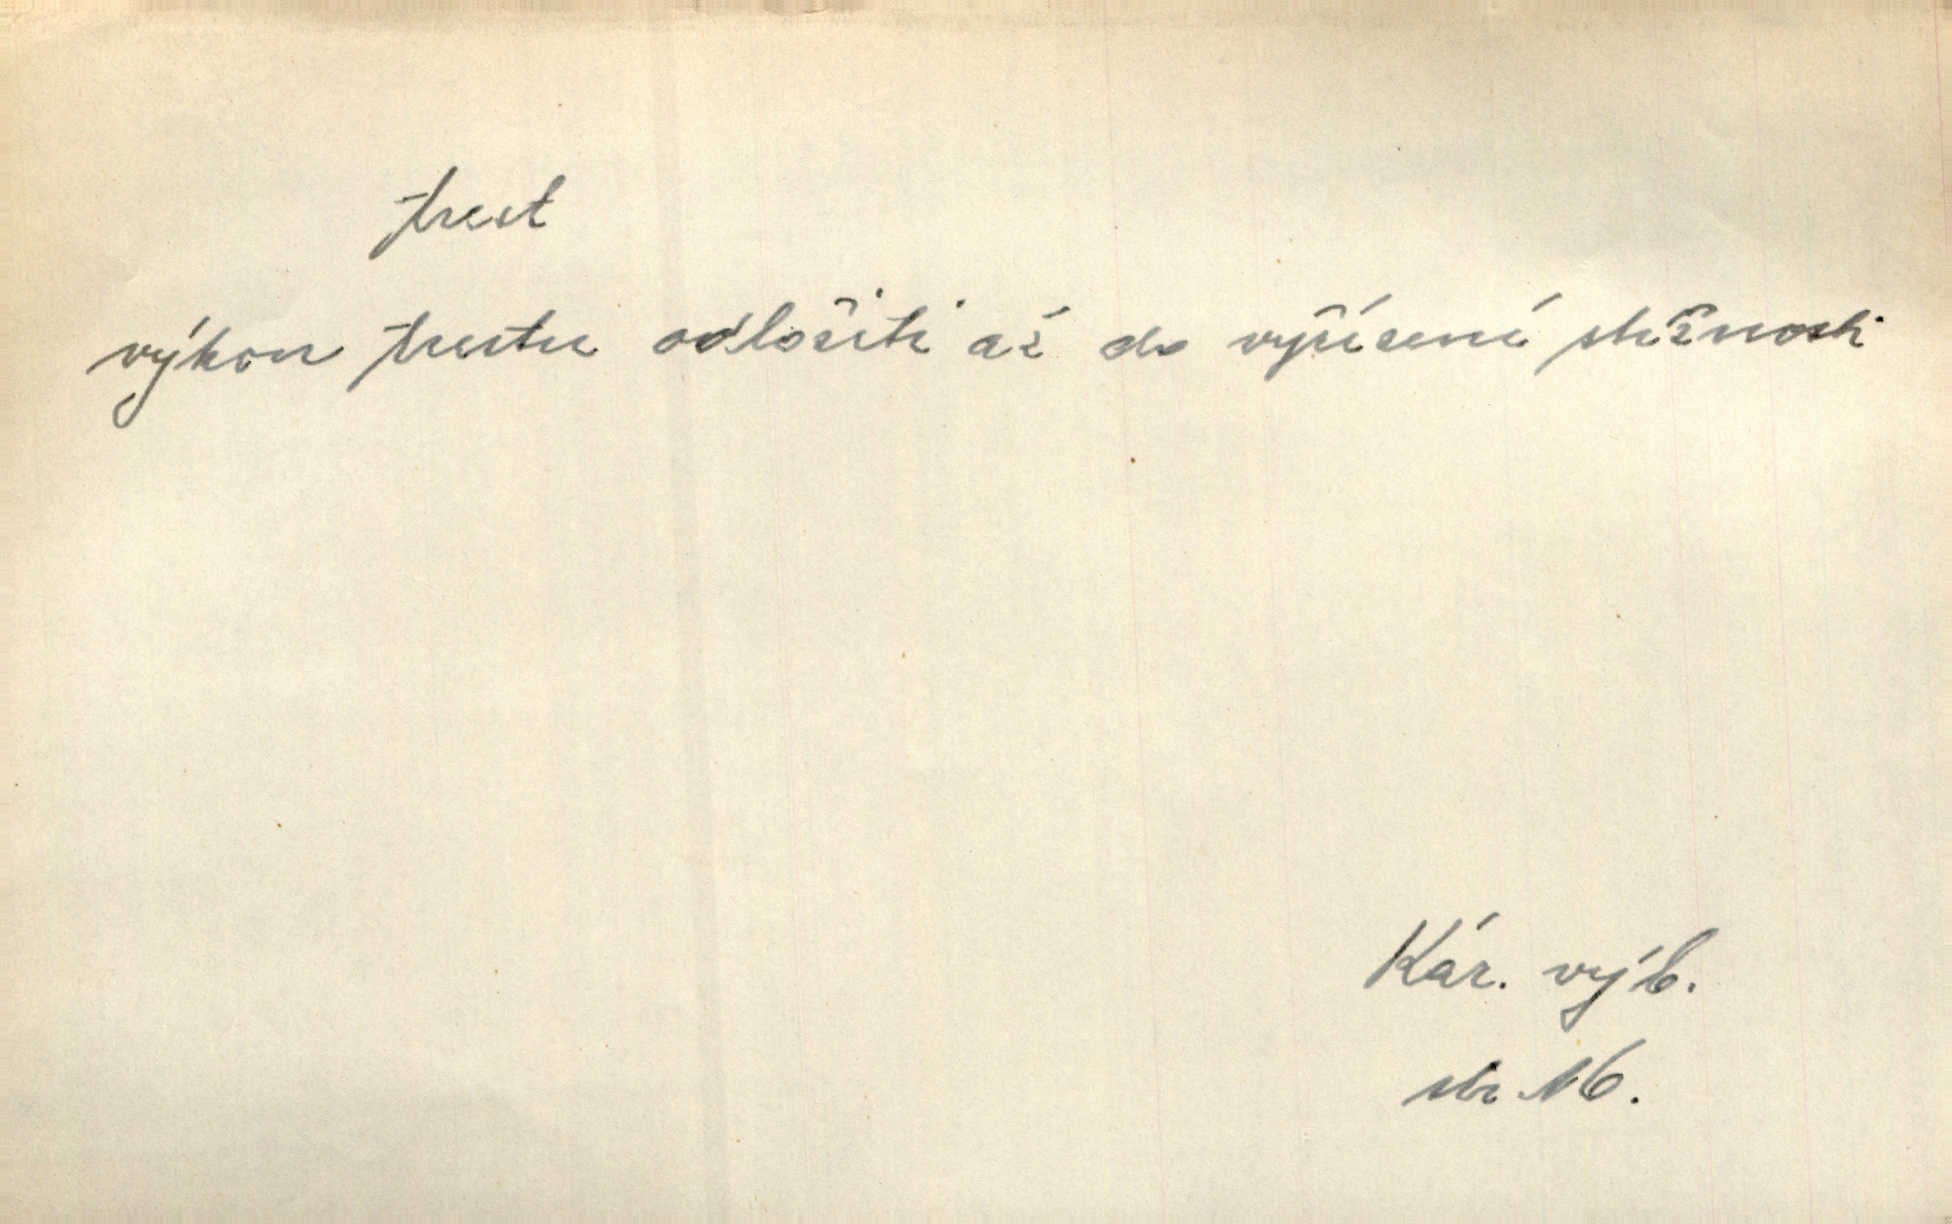 trest
výkon trestu odložiti až do vyřízení stížnosti
Kár. výb.
str 16.